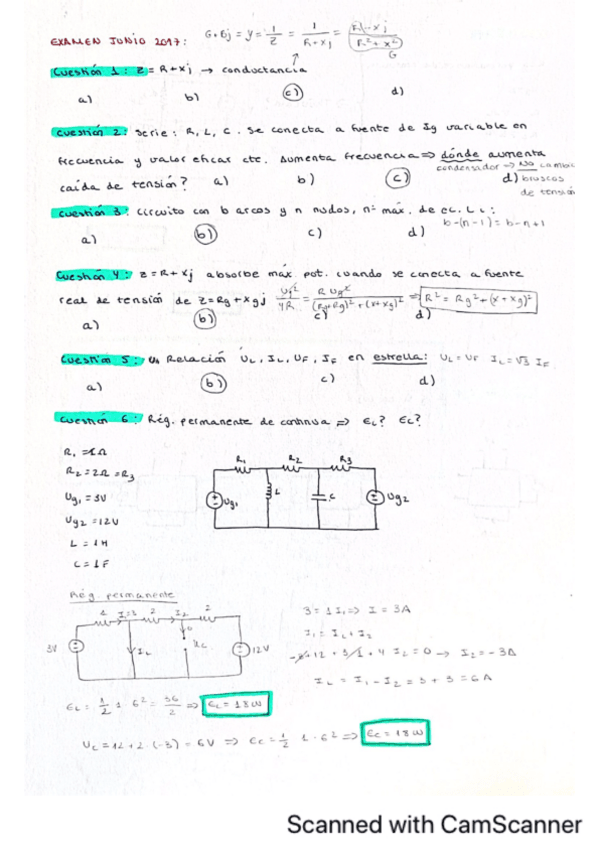 EXAMEN JUNIO 2017: G+Bj = y = 1/Z = 1/(R+xj) = (R-xj)/(R²+x²)
G
Cuestión 1: z = R+xj → conductancia
a) b) c) d)
Cuestión 2: serie: R, L, C. Se conecta a fuente de Ig variable en
frecuencia y valor eficaz cte. Aumenta frecuencia ⇒ dónde aumenta
condensador → No cambios
caída de tensión? a) b) c) d) bruscos
de tensión
Cuestión 3: circuito con b arcos y n nudos, nº máx. de ec. L.:
b-(n-1) = b-n+1
a) b) c) d)
Cuestión 4: z = R+xj absorbe máx pot. cuando se conecta a fuente
real de tensión de z = Rg+xgj Ug²/4R = R Ug²/((R+Rg)²+(x+xg)²) = R² = Rg²+(x+xg)²
a) b) c) d)
Cuestión 5: Relación UL, IL, UF, IF en estrella: UL = UF IL = √3 IF
a) b) c) d)
Cuestión 6: Rég. permanente de continua ⇒ EL? EC?
R1 = 1Ω
R2 = 2Ω = R3
Ug1 = 3V
Ug2 = 12V
L = 1H
C = 1F
R1 R2 R3
Ug1 L C Ug2
Rég. permanente
1 I=3 2 I2 2
3V IL 0 Uc 12V
3 = 1 I1 ⇒ I = 3A
I1 = IL + I2
-3+12+3/1+4 I2 = 0 → I2 = -3A
IL = I1 - I2 = 3+3 = 6A
EL = 1/2 1 · 6² = 36/2 ⇒ EL = 18W
UC = 12+2·(-3) = 6V ⇒ EC = 1/2 1·6² ⇒ EC = 18W
Scanned with CamScanner